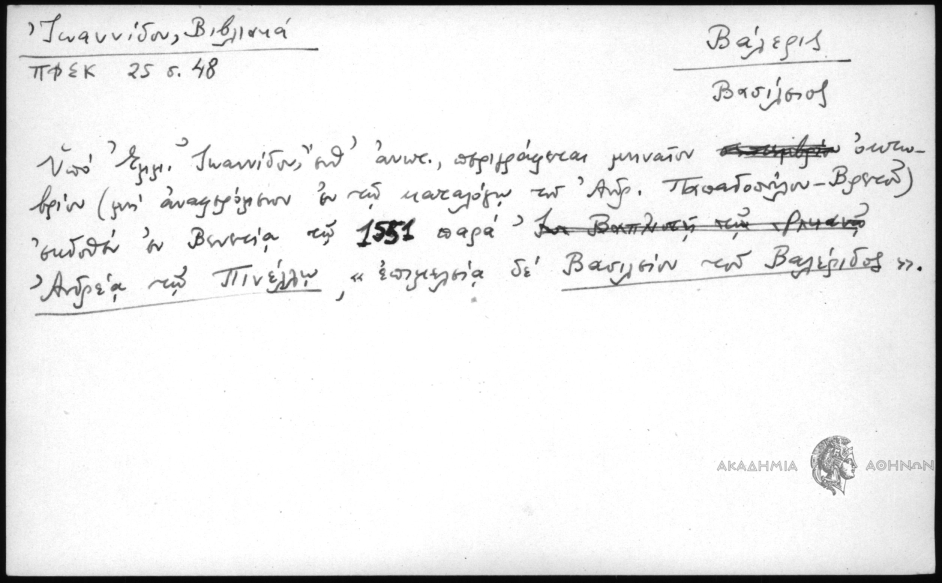 Ἰωαννίδου, Βιβλιακά
ΠΦΣΚ 25 σ. 48
Βάλερις
Βασίλειος
Ὑπό Ἐμμ. Ἰωαννίδου, ἔνθ' ἀνωτ., περιγράφεται μηναῖον ὀκτω-
βρίου (μή ἀναφερόμενον ἐν τῷ καταλόγῳ τοῦ Ἀνδρ. Παπαδοπούλου-Βρετοῦ)
ἐκδοθέν ἐν Βενετίᾳ τῷ 1551 παρά
Ἀνδρέᾳ τῷ Πινέλλῳ, « ἐπιμελείᾳ δέ Βασιλείου τοῦ Βαλέριδος ».
ΑΚΑΔΗΜΙΑ ΑΘΗΝΩΝ